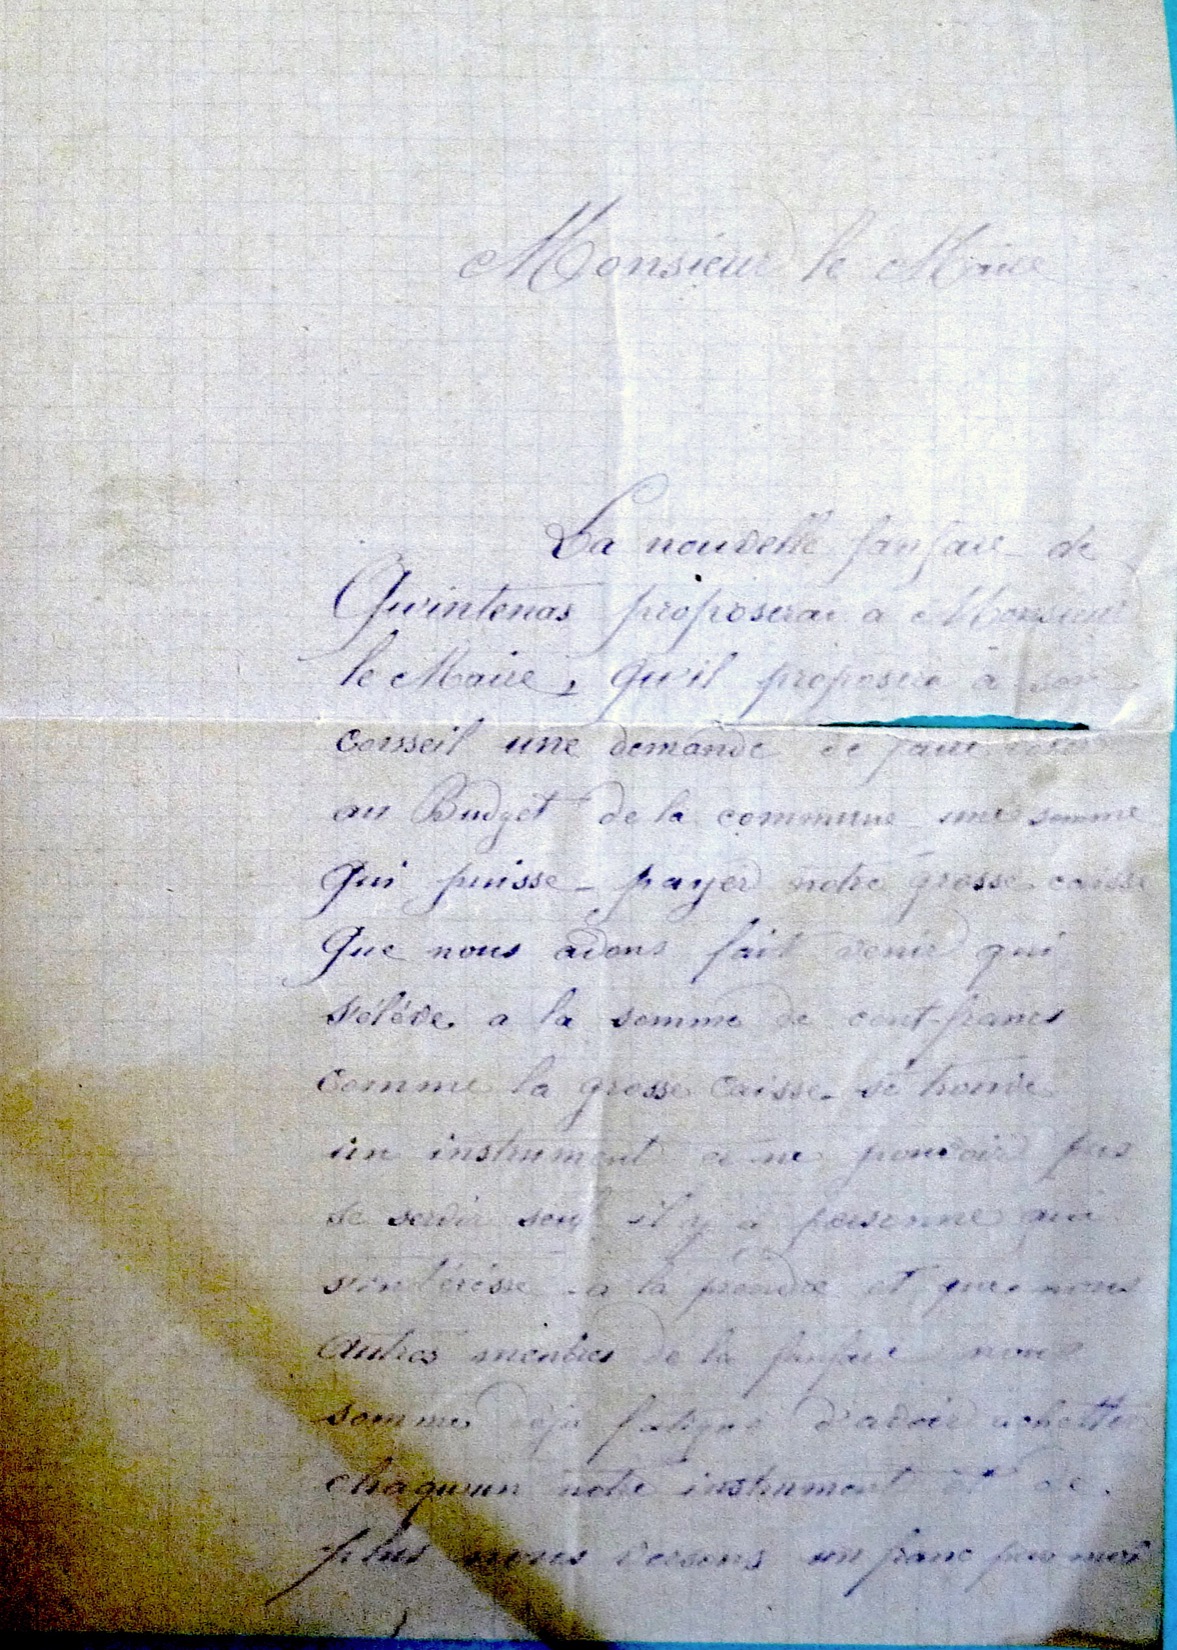 Monsieur le Maire
La nouvelle fanfare de
Quintenas proposerai a Monsieur
le Maire, qu'il propose a son
conseil une demande de faire voter
au Budget de la commune une somme
qui puisse payer notre grosse caisse
que nous avons fait venir qui
s'élève a la somme de cent francs
comme la grosse caisse se trouve
un instrument a ne pouvoir pas
se servir seul il y a personne qui
s'intéresse a la prendre et que nous
autres membres de la fanfare nous
somme deja fatigue d'avoir achetter
chaqu'un notre instrument et de
plus nous versons un franc par mois